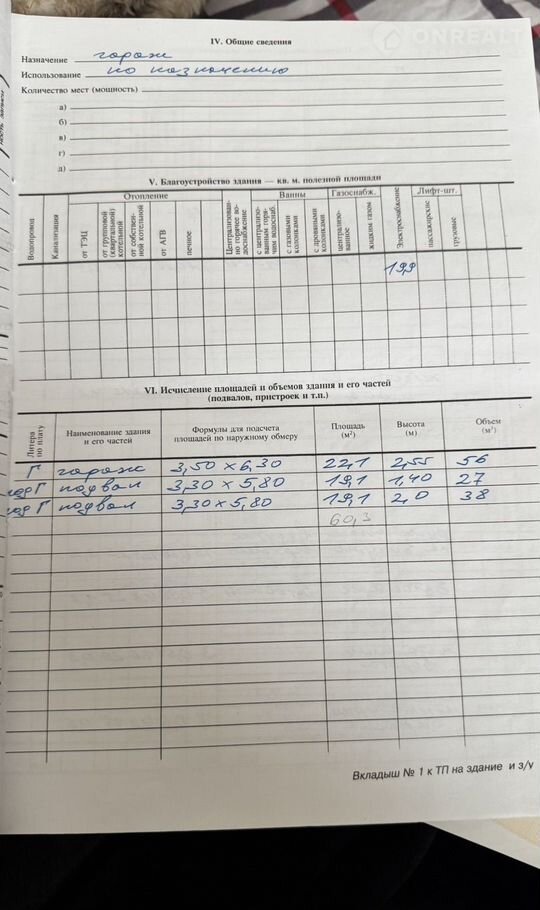 ONREALT
IV. Общие сведения
Назначение гараж
Использование по назначению
Количество мест (мощность)
а)
б)
в)
г)
д)
V. Благоустройство здания — кв. м. полезной площади
Водопровод
Канализация
Отопление
от ТЭЦ
от групповой (квартальной) котельной
от собственной котельной
от АГВ
печное
Централизованно горячее водоснабжение
Ванны
с централизованным горячим водоснаб.
с газовыми колонками
с дровяными колонками
Газоснабж.
централизованное
жидким газом
Электроснабжение
Лифт-шт.
пассажирские
грузовые
19,9
VI. Исчисление площадей и объемов здания и его частей
(подвалов, пристроек и т.п.)
Литера по плану
Наименование здания и его частей
Формулы для подсчета площадей по наружному обмеру
Площадь (м²)
Высота (м)
Объем (м³)
Г гараж 3,50 × 6,30 22,1 2,55 56
под Г подвал 3,30 × 5,80 19,1 1,40 27
под Г подвал 3,30 × 5,80 19,1 2,0 38
60,3
Вкладыш № 1 к ТП на здание и з/у